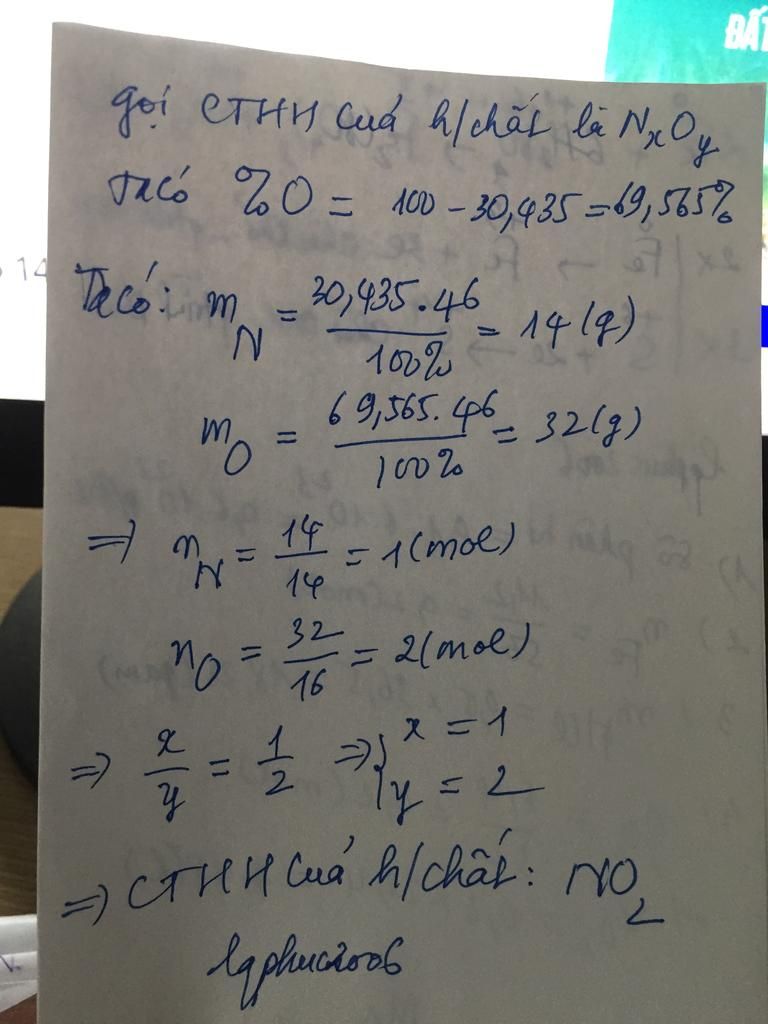 gọi CTHH cuả h/chất là NxOy
Ta có %O = 100 - 30,435 = 69,565%
Ta có: mN = 30,435.46 / 100% = 14 (g)
mO = 69,565.46 / 100% = 32 (g)
=> nN = 14/14 = 1 (mol)
nO = 32/16 = 2 (mol)
=> x/y = 1/2 => { x = 1
y = 2
=> CTHH cuả h/chất: NO2
lqphuc2006
ĐẤT
14